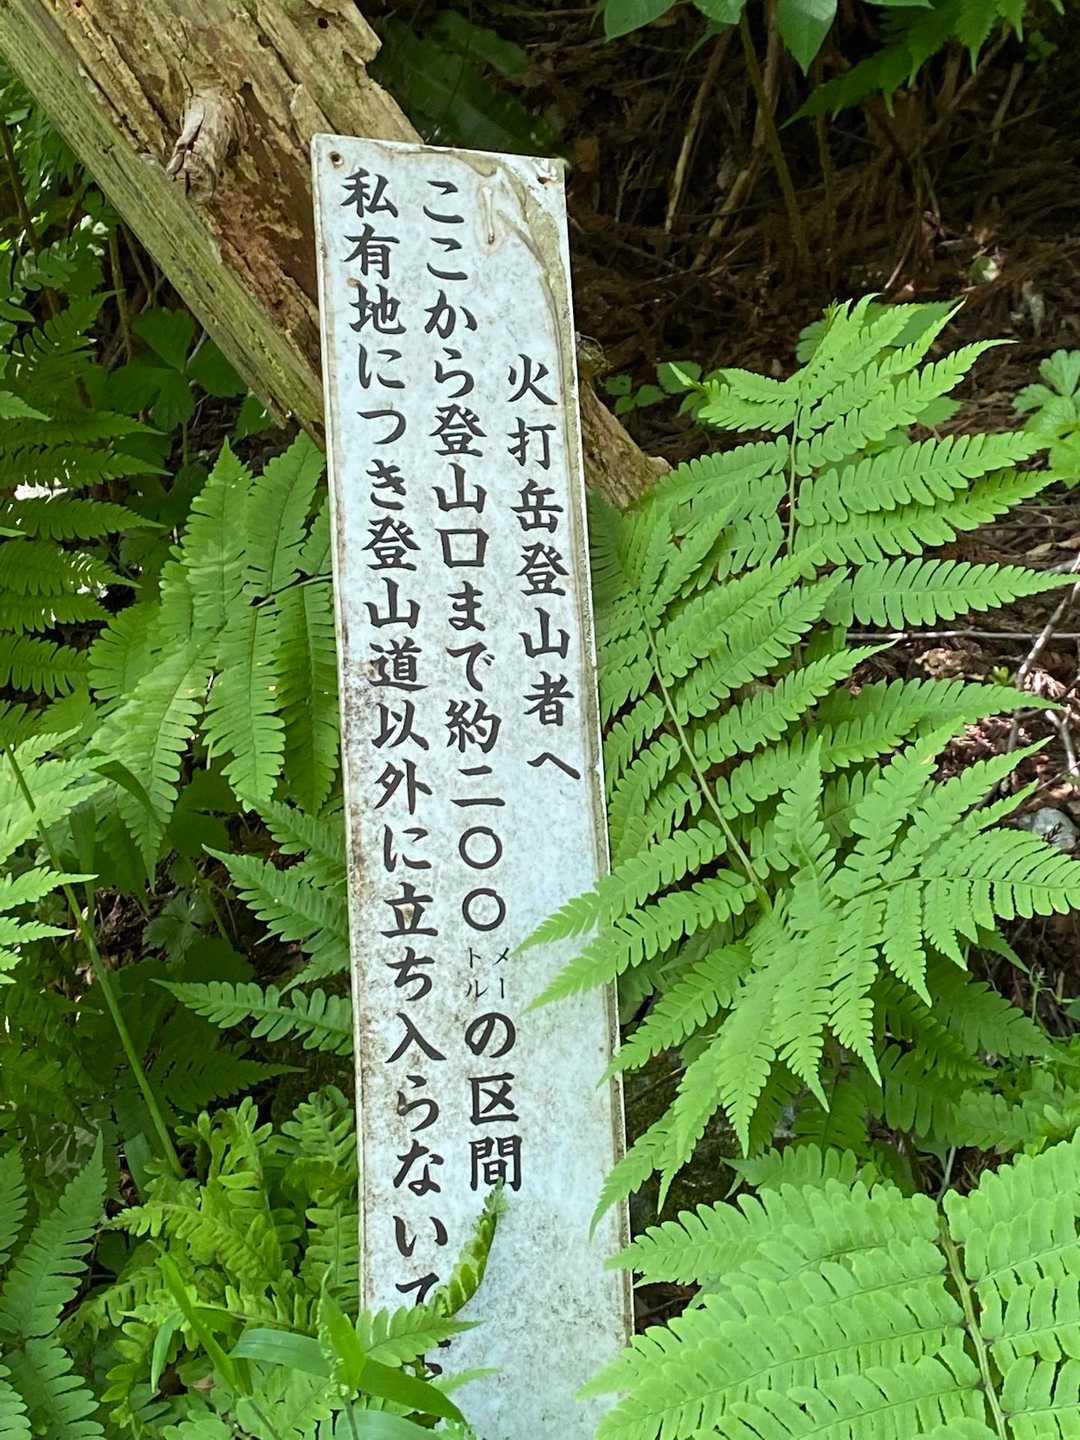 火打岳登山者へ
ここから登山口まで約二〇〇メートルの区間
私有地につき登山道以外に立ち入らないで